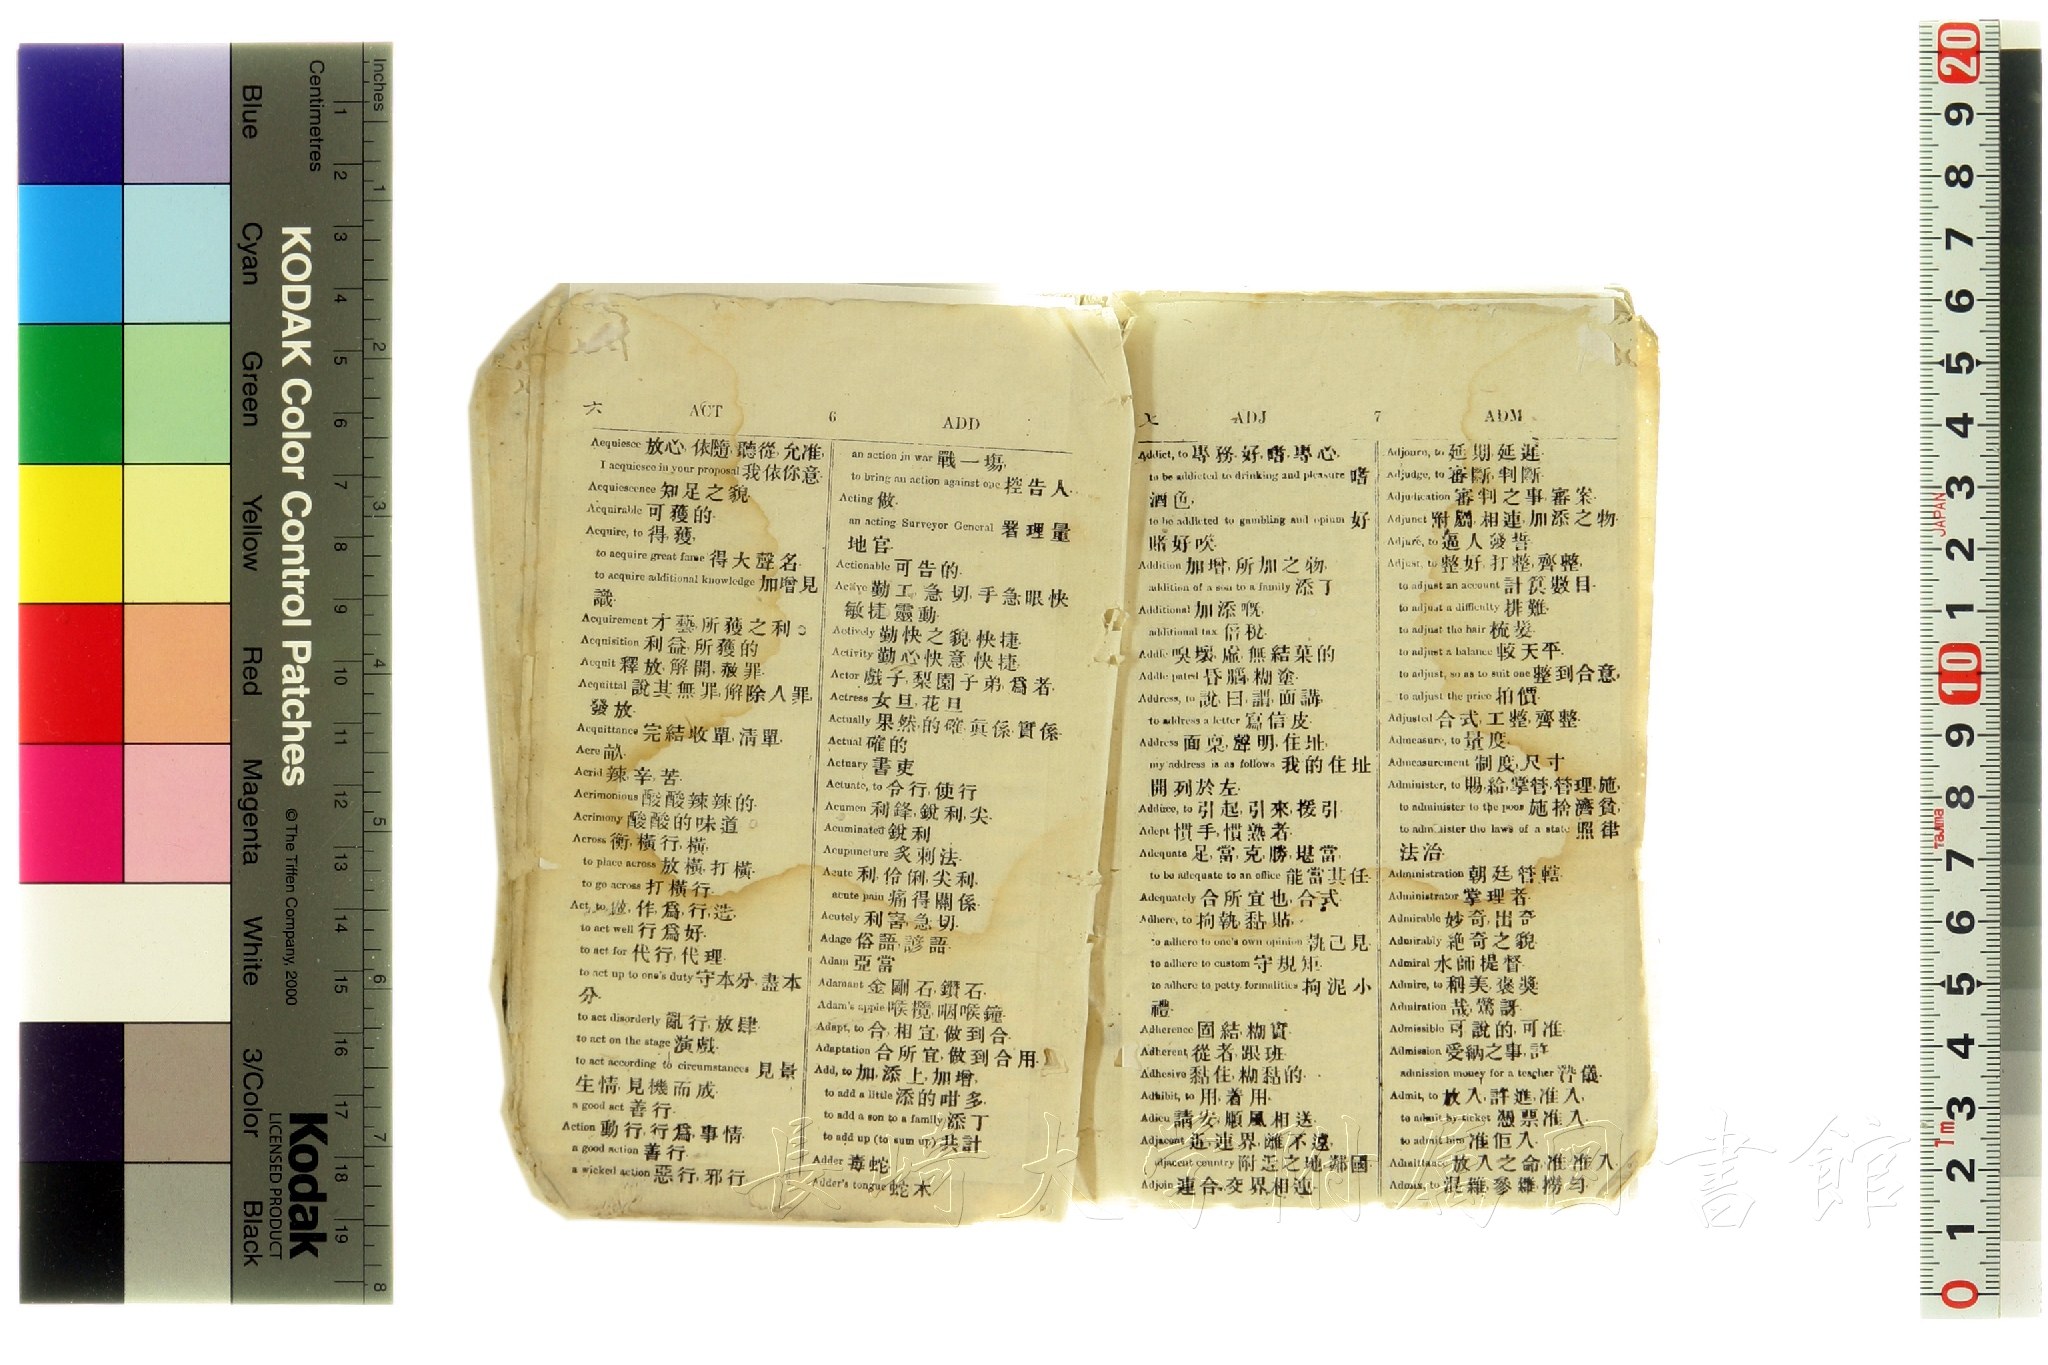 六 ACT 6 ADD
Acquiesce 放心,依隨,聽從,允准,
I acquiesce in your proposal 我依你意.
Acquiescence 知足之貌.
Acquirable 可獲的.
Acquire, to 得,獲,
to acquire great fame 得大聲名.
to acquire additional knowledge 加增見
識.
Acquirement 才藝,所獲之利。
Acquisition 利益,所獲的
Acquit 釋放,解開,赦罪.
Acquittal 說其無罪,解除人罪,
發放.
Acquittance 完結收單,清單.
Acre 畝.
Acrid 辣,辛,苦.
Acrimonious 酸酸辣辣的.
Acrimony 酸酸的味道
Across 衡,橫行,橫,
to place across 放橫,打橫.
to go across 打橫行.
Act, to 做,作,爲,行,造.
to act well 行爲好.
to act for 代行,代理.
to act up to one's duty 守本分,盡本
分.
to act disorderly 亂行,放肆.
to act on the stage 演戲.
to act according to circumstances 見景
生情,見機而成.
a good act 善行.
Action 動行,行爲,事情.
a good action 善行.
a wicked action 惡行,邪行
an action in war 戰一塲,
to bring an action against one 控告人.
Acting 做.
an acting Surveyor General 署理量
地官.
Actionable 可告的.
Active 勤工,急切,手急眼快
敏捷,靈動.
Actively 勤快之貌,快捷.
Activity 勤心快意,快捷,
Actor 戲子,梨園子弟,爲者.
Actress 女旦,花旦
Actually 果然,的確,眞係,實係.
Actual 確的
Actuary 書吏
Actuate, to 令行,使行
Acumen 利鋒,銳利,尖.
Acuminated 銳利
Acupuncture 炙刺法.
Acute 利,伶俐,尖利.
acute pain 痛得關係.
Acutely 利害,急切.
Adage 俗語,諺語.
Adam 亞當
Adamant 金剛石,鑽石.
Adam's apple 喉欖,咽喉鐘.
Adapt, to 合,相宜,做到合.
Adaptation 合所宜,做到合用.
Add, to 加,添上,加增,
to add a little 添的咁多.
to add a son to a family 添丁
to add up (to sum up) 共計
Adder 毒蛇
Adder's tongue 蛇木
七 ADJ 7 ADM
Addict, to 專務,好,嗜,專心.
to be addicted to drinking and pleasure 嗜
酒色,
to be addicted to gambling and opium 好
賭好吹.
Addition 加增,所加之物.
addition of a son to a family 添丁
Additional 加添嘅.
additional tax 倍稅.
Addle 臭壞,虛,無結菓的
Addle-pated 昏腦,糊塗.
Address, to 說,曰,謂,面講,
to address a letter 寫信皮.
Address 面稟,聲明,住址,
my address is as follows 我的住址
開列於左.
Adduce, to 引起,引來,援引.
Adept 慣手,慣熟者.
Adequate 足,當,克,勝,堪當,
to be adequate to an office 能當其任.
Adequately 合所宜也,合式.
Adhere, to 拘執,黏貼,
to adhere to one's own opinion 執己見.
to adhere to custom 守規矩.
to adhere to petty formalities 拘泥小
禮.
Adherence 固結,糊實.
Adherent 從者,跟班.
Adhesive 黏住,糊黏的.
Adhibit, to 用,着用.
Adieu 請安,順風相送.
Adjacent 近,連界,離不遠,
adjacent country 附近之地,鄰國.
Adjoin 連合,交界,相連.
Adjourn, to 延期,延遲.
Adjudge, to 審斷,判斷.
Adjudication 審判之事,審案.
Adjunct 附屬,相連,加添之物.
Adjure, to 逼人發誓.
Adjust, to 整好,打整,齊整,
to adjust an account 計筭數目.
to adjust a difficulty 排難.
to adjust the hair 梳髮.
to adjust a balance 較天平.
to adjust, so as to suit one 整到合意,
to adjust the price 拍價.
Adjusted 合式,工整,齊整.
Admeasure, to 量度.
Admeasurement 制度,尺寸
Administer, to 賜給,掌管,管理,施,
to administer to the poor 施捨濟貧,
to administer the laws of a state 照律
法治.
Administration 朝廷,管轄.
Administrator 掌理者.
Admirable 妙奇,出奇
Admirably 絶奇之貌.
Admiral 水師提督.
Admire, to 稱美,褒奬
Admiration 哉,驚訝.
Admissible 可說的,可准.
Admission 受納之事,許.
admission money for a teacher
Admit, to 放入,許進,准入,
to admit by ticket 憑票准入.
to admit him 准佢入.
Admittance 放入之命,准,准入.
Admix, to 混雜,參雜,撈勻.
長崎大学附属図書館
Inches
Centimetres
KODAK Color Control Patches
© The Tiffen Company, 2000
Kodak
LICENSED PRODUCT
Blue
Cyan
Green
Yellow
Red
Magenta
White
3/Color
Black
1 2 3 4 5 6 7 8 9 10 11 12 13 14 15 16 17 18 19
1 2 3 4 5 6 7 8
20 9 8 7 6 5 4 3 2 1 10 9 8 7 6 5 4 3 2 1 0
JAPAN
Tajima
1m